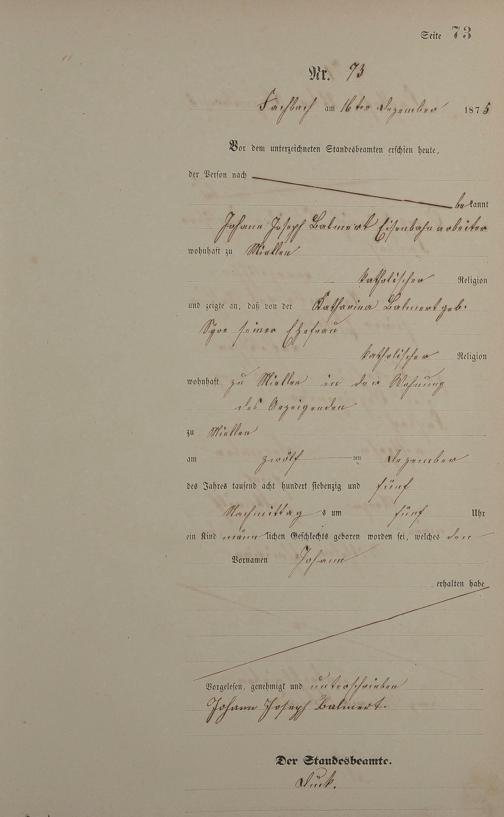 Seite 73
Nr. 73
Fachbach am 16ten Dezember 1875
Vor dem unterzeichneten Standesbeamten erschien heute,
der Person nach
bekannt
Johann Joseph Balmert Eisenbahnarbeiter
wohnhaft zu Miellen
katholischer Religion
und zeigte an, daß von der Katharina Balmert geb.
seiner Ehefrau
katholischer Religion
wohnhaft zu Miellen in der Wohnung
des Anzeigenden
zu Miellen
am zwölf ten Dezember
des Jahres tausend acht hundert siebenzig und fünf
Nachmittags um fünf Uhr
ein Kind männlichen Geschlechts geboren worden sei, welches den
Vornamen Johann
erhalten habe
Vorgelesen, genehmigt und unterschrieben
Johann Joseph Balmert.
Der Standesbeamte.